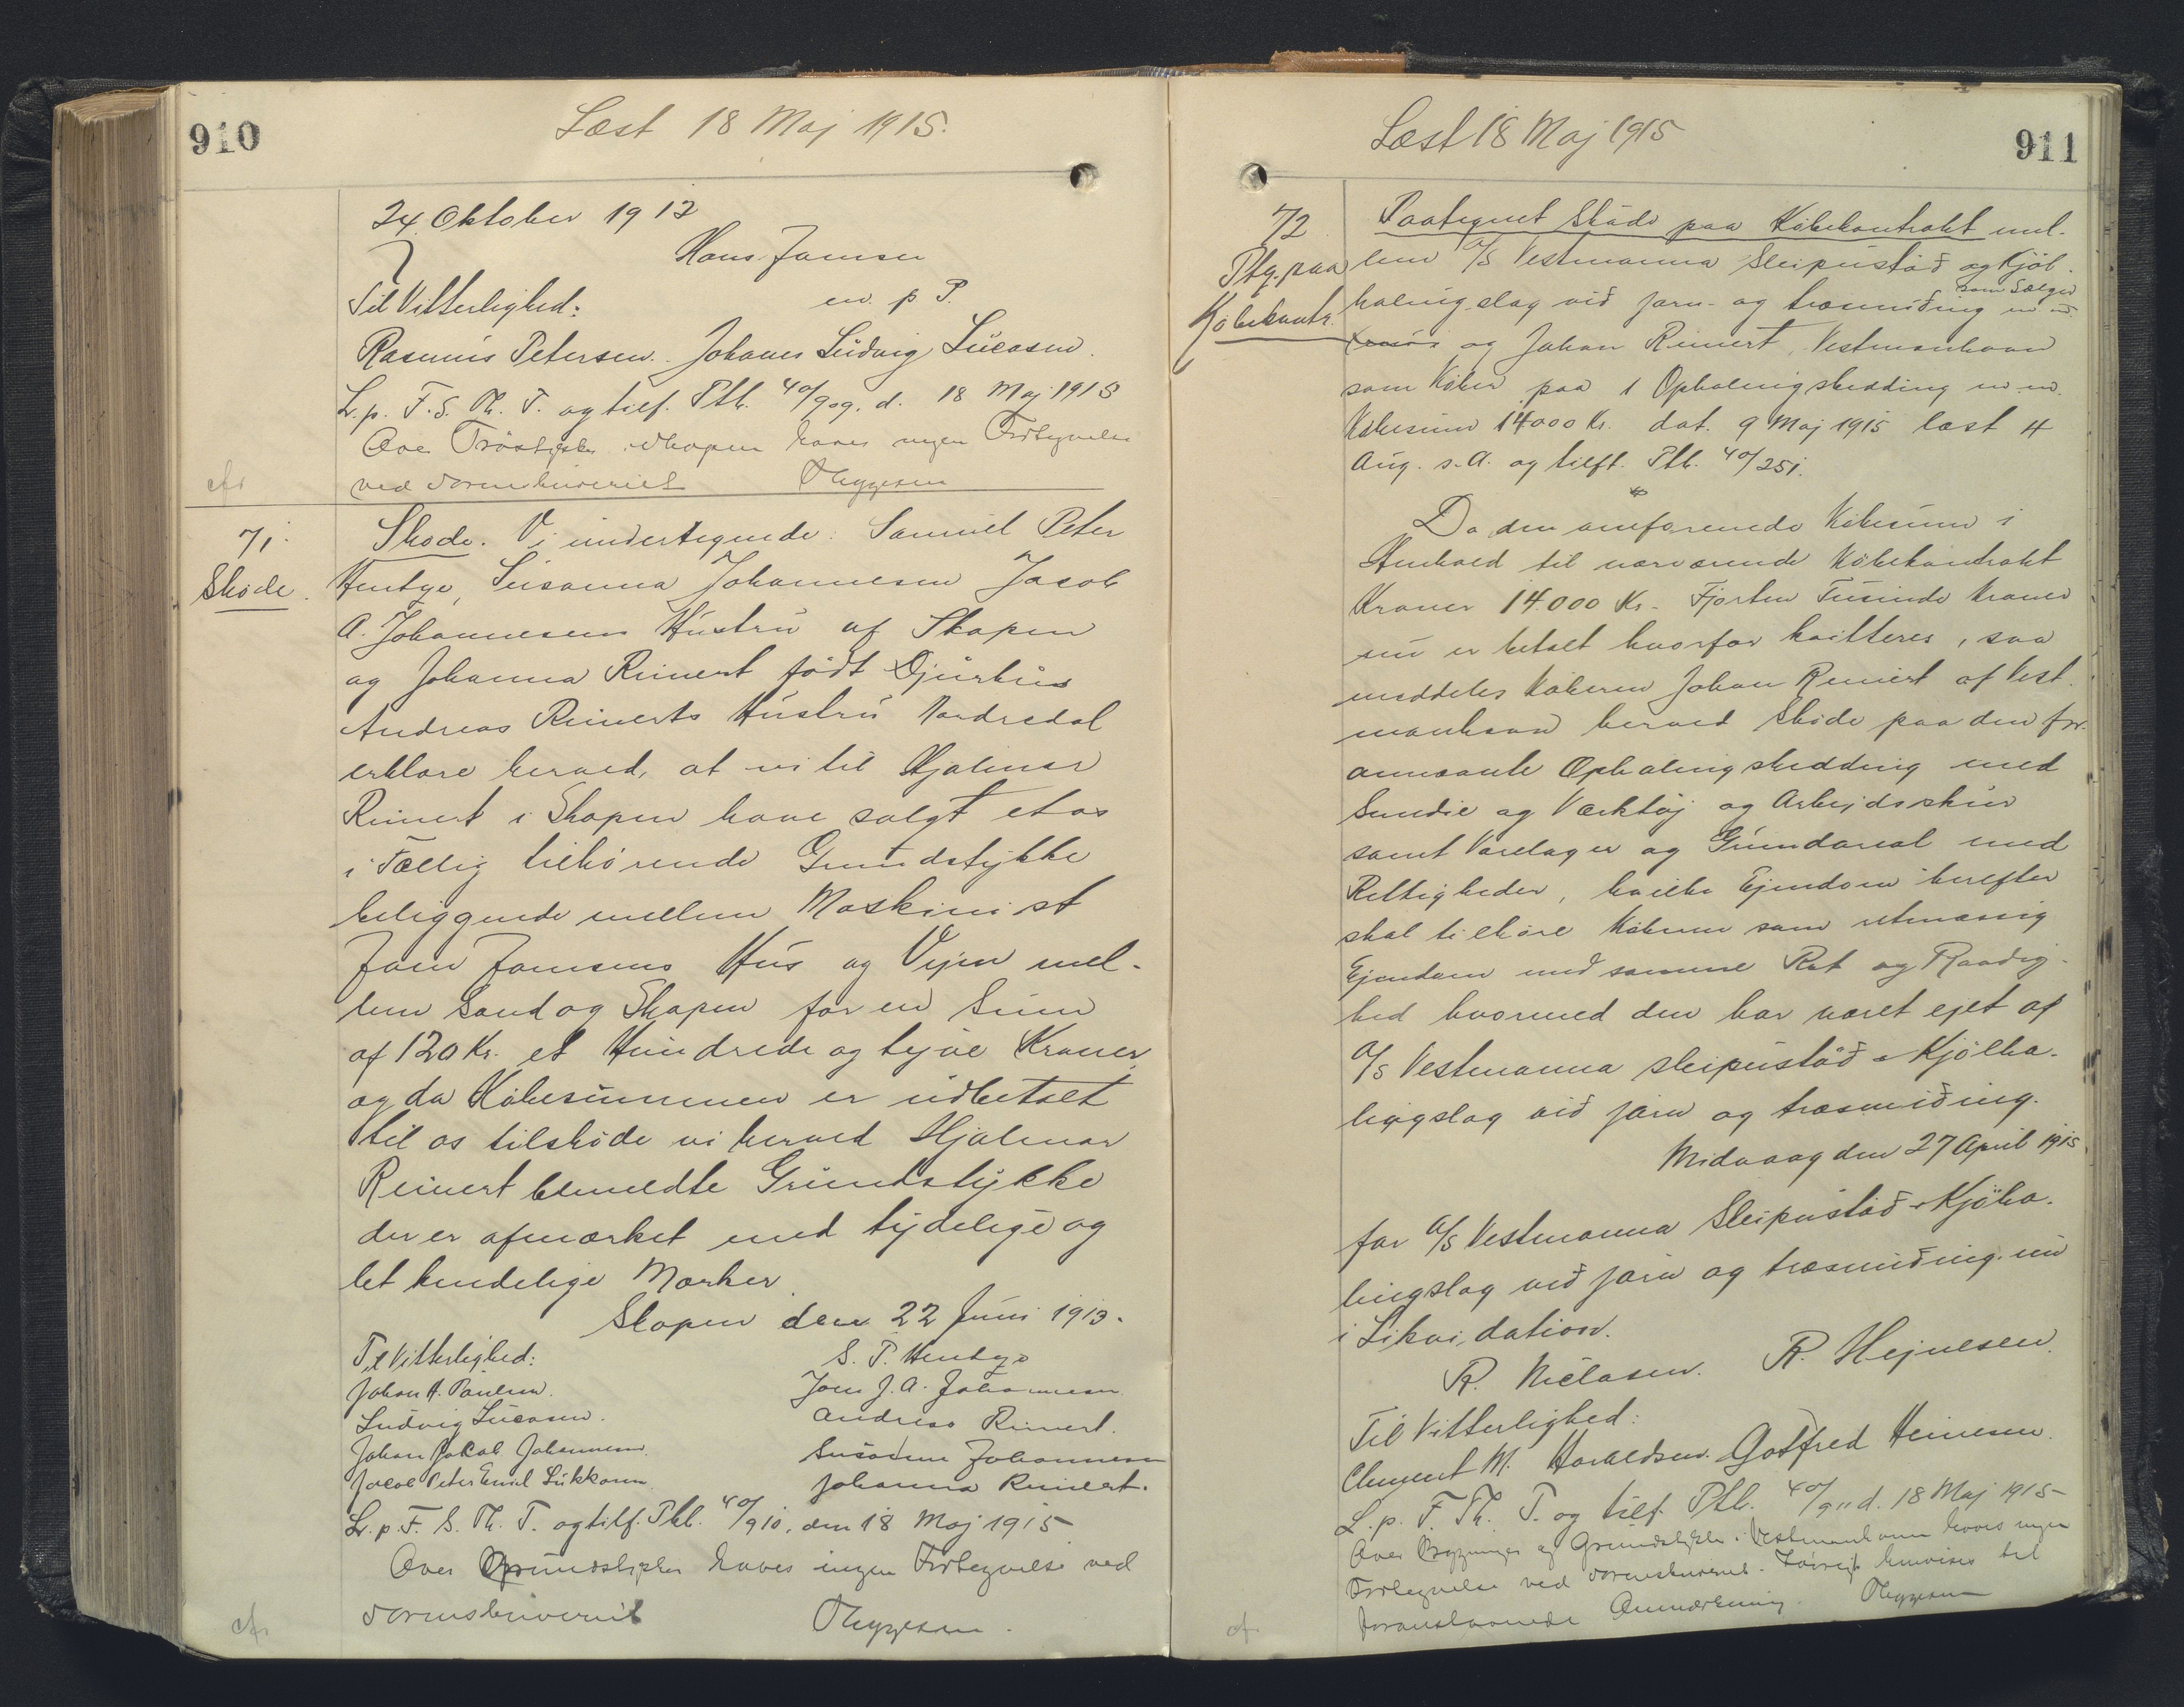 910
Læst 18 Maj 1915.
24. Oktober 1912
Hans Jamsen
Til Vitterlighed:
m. p. P.
Rasmus Petersen. Johanes Ludvig Lucasen.
L. p. F. S. Th. T. og tilf. Ptb. 40/909. d. 18 Maj 1915
Ove haves ingen Forbegnelse
ved Sorenskriveriet
cfr
71.
Skøde.
Skøde. Vi undertegnede: Samuel Peter
Hentze, Susanna Johannesen Jacob
A. Johannesens Hustru af Skopen
og Johanna Reinert født Djurhus
Andreas Reinerts Hustru Nordredal
erklære herved, at vi til Hjalmar
Reinert i Skopen have solgt et os
i Fællig tilhørende Grundstykke
beliggende mellem Maskinist
Joen Joensens Hus og Vejen mel-
lem Sand og Skopen for en Sum
af 120 Kr. et Hundrede og tyve Kroner
og da Købesummen er udbetalt
til os tilskøde vi herved Hjalmar
Reinert bemeldte Grundstykke
der er afmærket med tydelige og
let kendelige Mærker
Skopen den 22 Juni 1913.
Til Vitterlighed:
S. P. Hentze
Johan H. Poulsen.
Joen J. A. Johannesen
Ludvig Lucasen.
Andreas Reinert.
Johan Jakob Johannesen
Susanne Johannesen
Jacob Peter Emil Lükkasen
Johanna Reinert.
L. p. F. S. Th. T. og tilf. Ptb. 40/910, den 18 Maj 1915
Over Grundstykker haves ingen Forbegnelse ved
Sorenskriveriet
cfr
Læst 18 Maj 1915
911
72
Ptg. paa
Købekontr.
Paategnet Skøde paa Købekontrakt mel-
lem A/S Vestmanna Sleipistøð og Kjøl-
halingslag við jarn- og træsmiðing som Sælger
og Johan Reinert, Vestmanhavn
som Køber paa 1 Ophalingsbedding m. m.
Købesum 14000 Kr. dat. 9 Maj 1915 læst 4
Aug. s. A. og tilft. Ptb. 40/251.
Da den omførende Købesum i
Henhold til nærværende Købekontrakt
Kroner 14.000 Kr. Fjorten Tusinde Kroner
nu er betalt hvorfor kvitteres, saa
meddeles Køberen Johan Reinert af Vest-
manhavn herved Skøde paa den for-
annævnte Ophalingsbedding med
Smedie og Værktøj og Arbejdsskur
samt Varelager og Grundareal med
Rettigheder, hvilke Ejendom herefter
skal tilhøre Køberen som retmæssig
Ejendom med samme Ret og Raadig-
hed hvormed den har været ejet af
A/S Vestmanna sleipistøð & Kjølha-
lingslag við jarn og træsmiðing.
Midvaag den 27 April 1915.
for A/S Vestmanna Sleipistøð & Kjølha-
lingslag við jarn og træsmiðing. nu
i Likvidation.
P. Niclasen. R. Hejnesen.
Til Vitterlighed:
Clement M. Haraldsen. Gotfred Heinesen.
L. p. F. Th. T. og tilf. Ptb. 40/911 d. 18 Maj 1915
Over Bygninger og Grundstykke i Vestmanhavn haves ingen
Forbegnelse ved Sorenskriveriet. henvises til
foranstaaende Anmærkning.
cfr